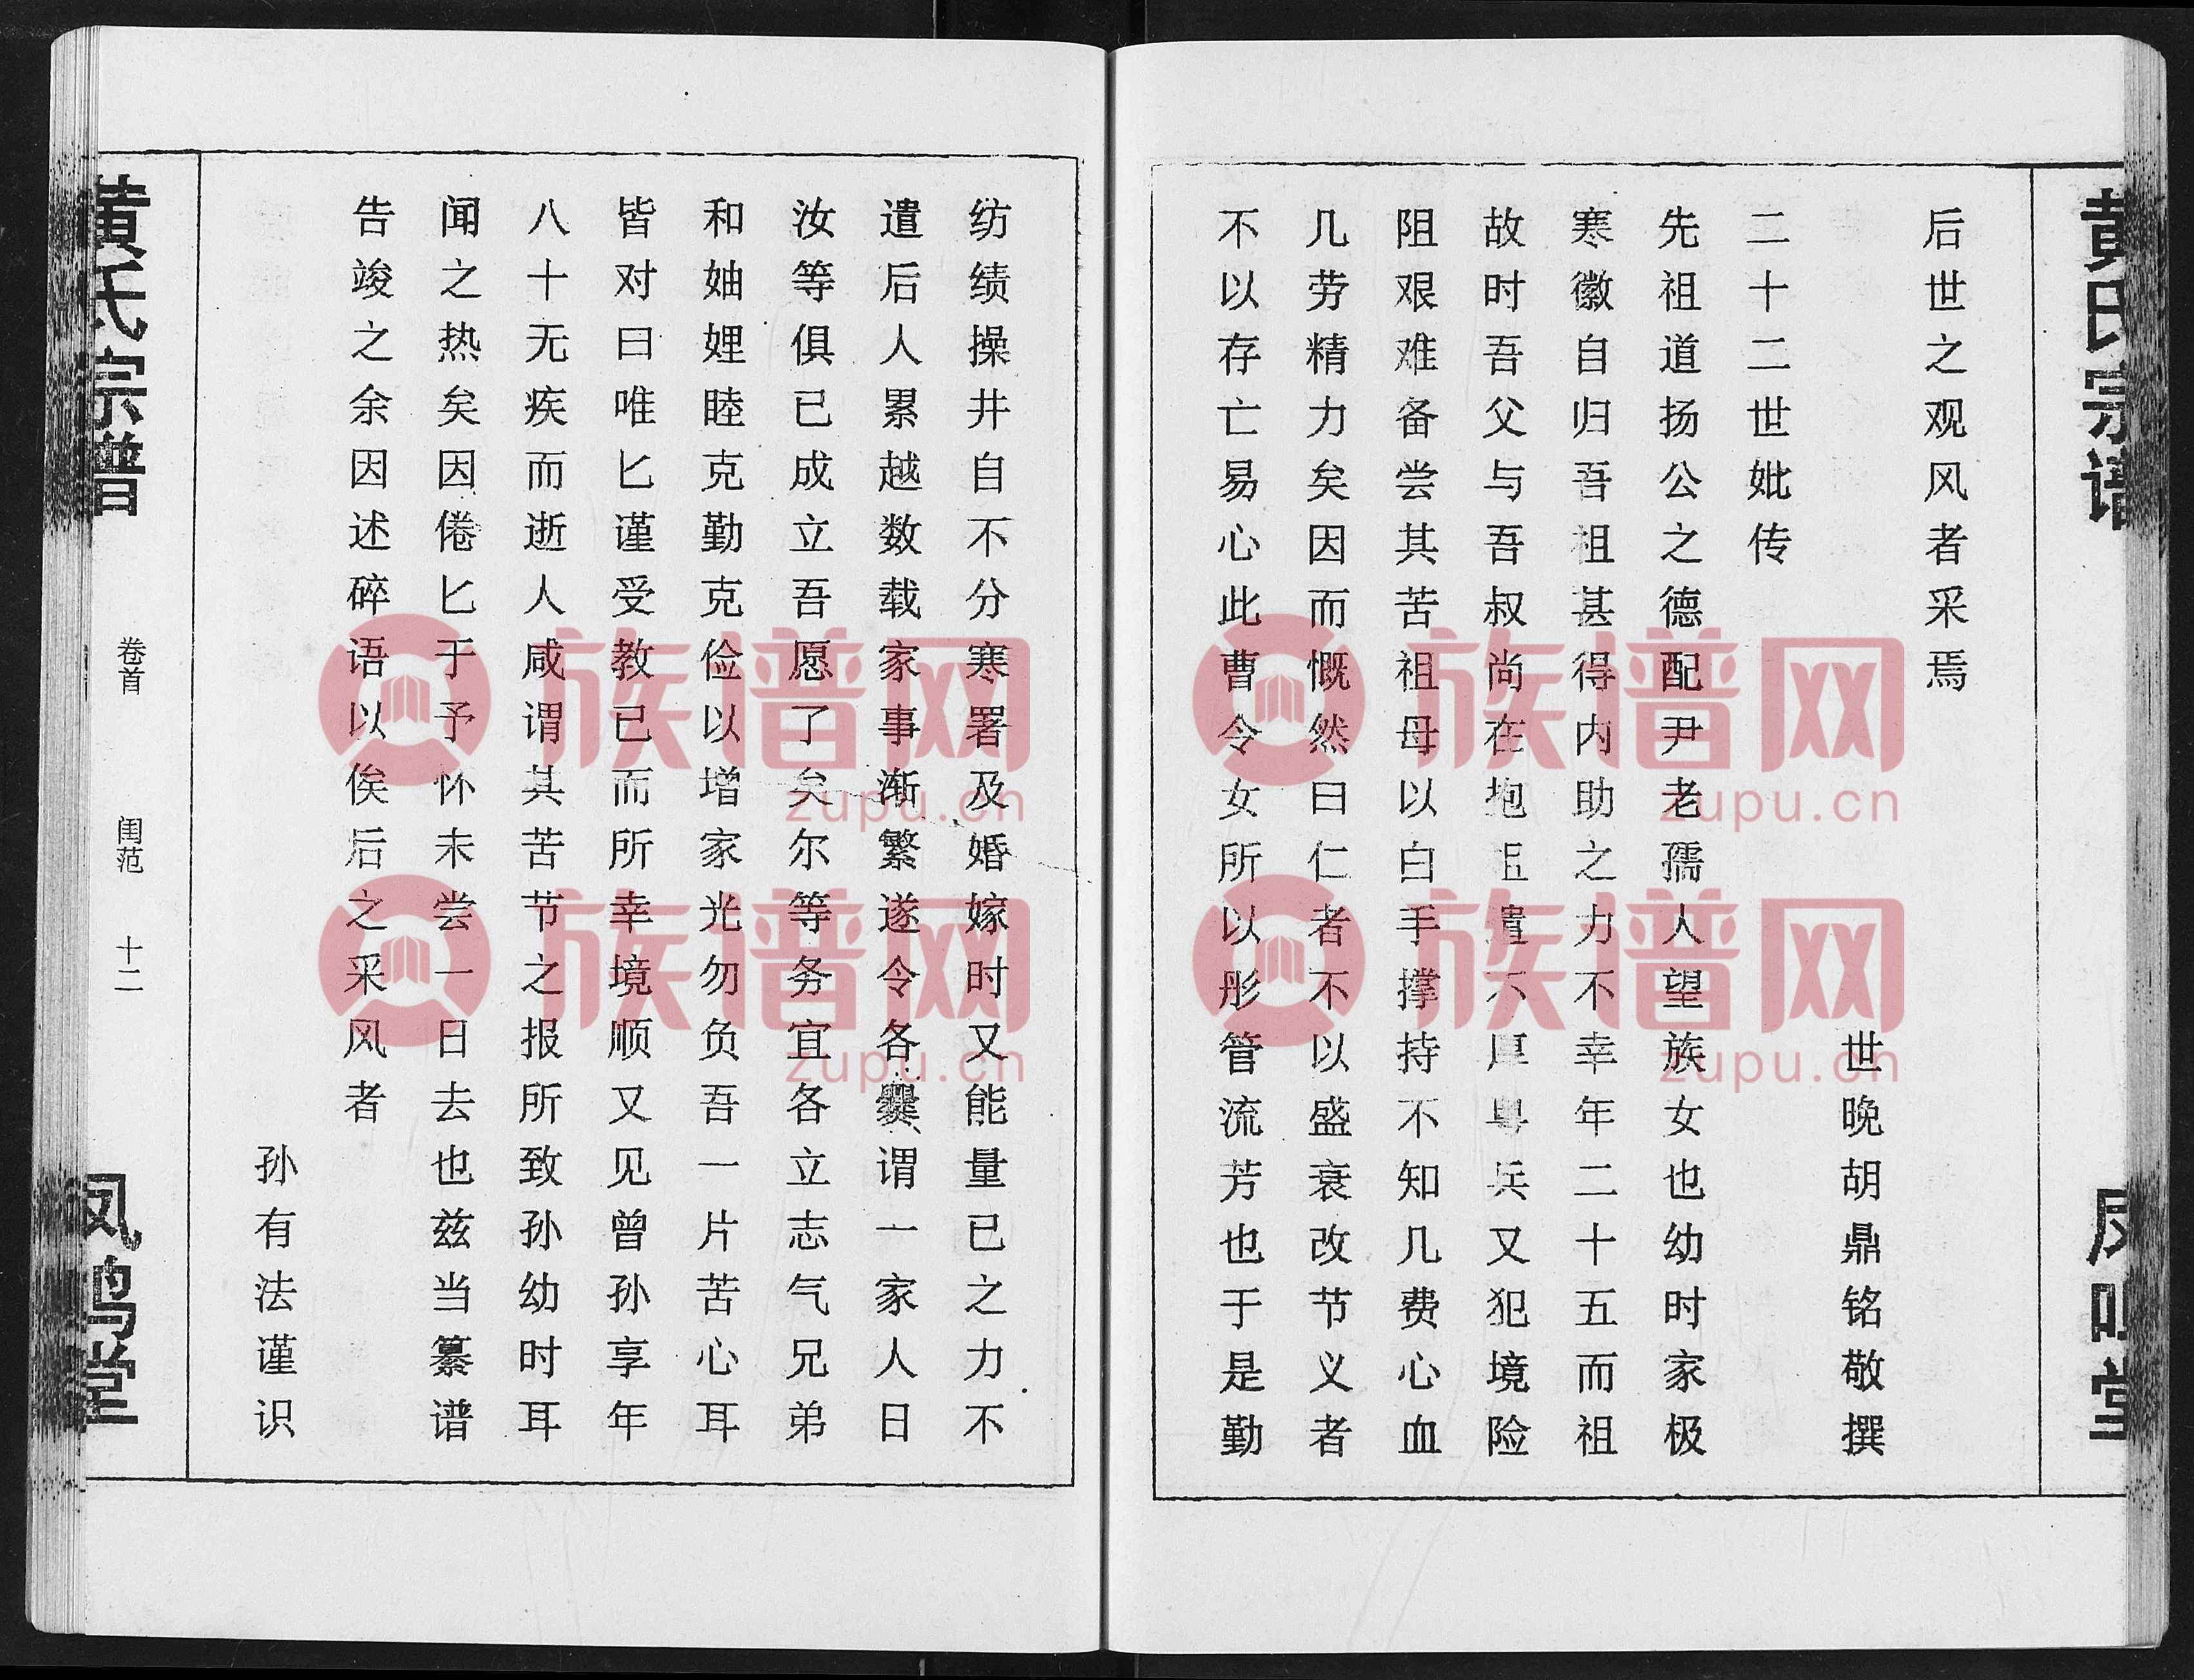 黄氏宗谱
凤鸣堂
后世之观风者采焉
世晚胡鼎铭敬撰
二十二世妣传
先祖道扬公之德配尹老孺人望族女也幼时家极
寒徽自归吾祖甚得内助之力不幸年二十五而祖
故时吾父与吾叔尚在抱且遗不厚粤兵又犯境险
阻艰难备尝其苦祖母以白手撑持不知几费心血
几劳精力矣因而慨然曰仁者不以盛衰改节义者
不以存亡易心此曹令女所以彤管流芳也于是勤
纺绩操井自不分寒署及婚嫁时又能量已之力不
遣后人累越数载家事渐繁遂令各爨谓一家人曰
汝等俱已成立吾愿了矣尔等务宜各立志气兄弟
和妯娌睦克勤克俭以增家光勿负吾一片苦心耳
皆对曰唯匕谨受教已而所幸境顺又见曾孙享年
八十无疾而逝人咸谓其苦节之报所致孙幼时耳
闻之热矣因倦匕于予怀未尝一日去也兹当纂谱
告竣之余因述碎语以俟后之采风者
孙有法谨识
黄氏宗谱
卷首
闺范
十二
凤鸣堂
族谱网
zupu.cn
族谱网
zupu.cn
族谱网
zupu.cn
族谱网
zupu.cn